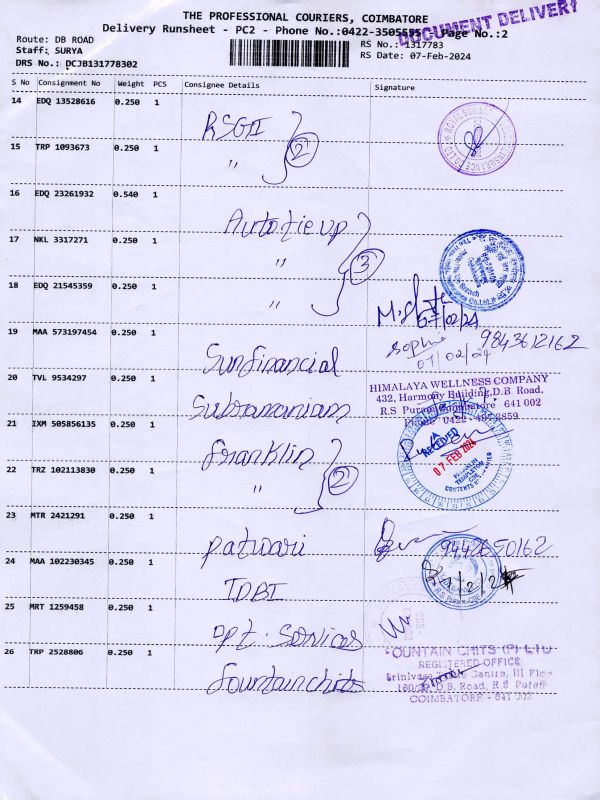 THE PROFESSIONAL COURIERS, COIMBATORE
Delivery Runsheet - PC2 - Phone No.:0422-3505555 Page No.:2
DOCUMENT DELIVERY
Route: DB ROAD
RS No.: 1317783
Staff: SURYA
RS Date: 07-Feb-2024
DRS No.: DCJB131778302
S No Consignment No Weight PCS Consignee Details Signature
14 EDQ 13528616 0.250 1
RSGI
15 TRP 1093673 0.250 1
" 2
16 EDQ 23261932 0.540 1
Autotieup
17 NKL 3317271 0.250 1
" 3
18 EDQ 21545359 0.250 1
"
07/02/24
19 MAA 573197454 0.250 1
Sunfinancial
Sophie 9843612162
07/02/24
20 TVL 9534297 0.250 1
Subramaniam
HIMALAYA WELLNESS COMPANY
432, Harmony Building, D.B. Road,
R.S Puram, Coimbatore 641 002
21 IXM 505856135 0.250 1
Franklin
RECEIVED
07 FEB 2024
22 TRZ 102113830 0.250 1
" 2
23 MTR 2421291 0.250 1
patwari
9442650162
24 MAA 102230345 0.250 1
IDBI
25 MRT 1259458 0.250 1
Dpt. Services
26 TRP 2528806 0.250 1
fountainchits
FOUNTAIN CHITS (P) LTD
REGISTERED OFFICE:
D.B. Road, R S Puram
COIMBATORE - 641 002